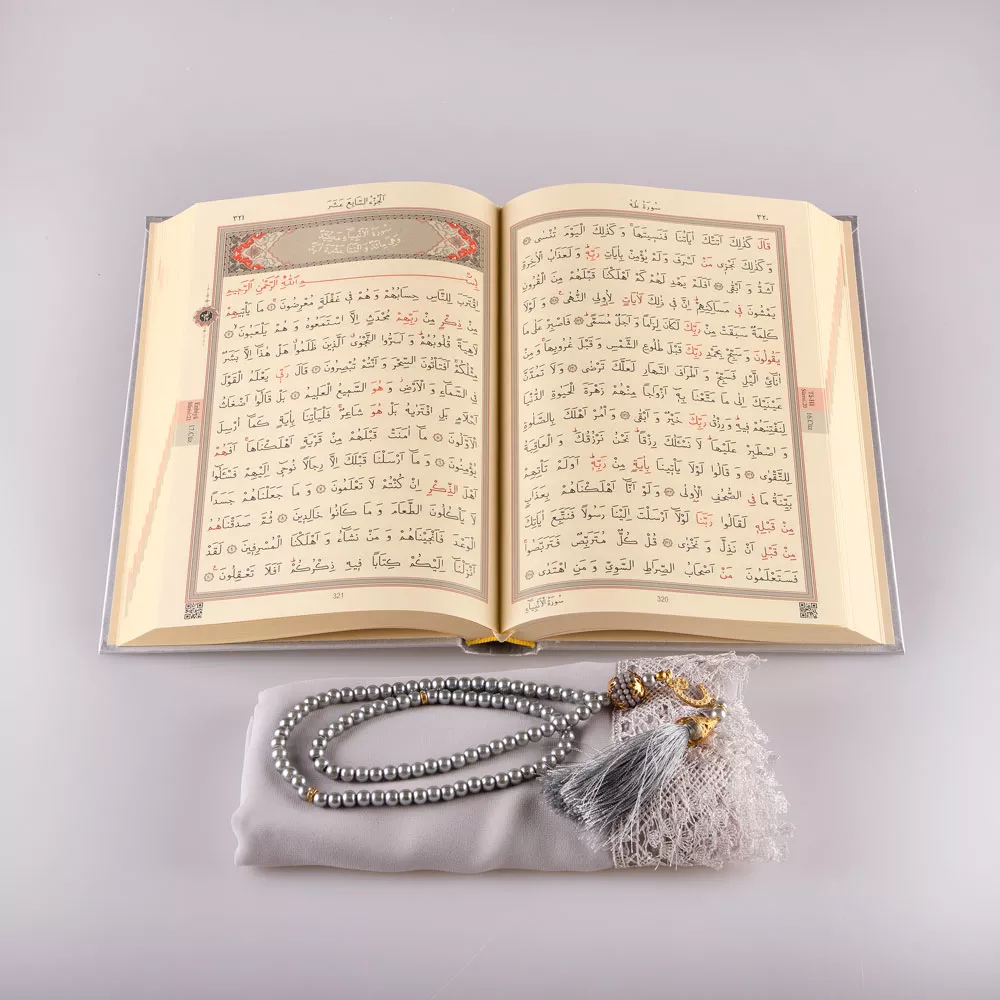 سورة طه
٣٢٠
قَالَ كَذٰلِكَ اَتَتْكَ اٰيَاتُنَا فَنَسٖيتَهَاۚ وَ كَذٰلِكَ الْيَوْمَ تُنْسٰى
وَ كَذٰلِكَ نَجْزٖى مَنْ اَسْرَفَ وَ لَمْ يُؤْمِنْ بِاٰيَاتِ رَبِّهٖؕ وَ لَعَذَابُ الْاٰخِرَةِ
اَشَدُّ وَ اَبْقٰى اَفَلَمْ يَهْدِ لَهُمْ كَمْ اَهْلَكْنَا قَبْلَهُمْ مِنَ الْقُرُونِ
يَمْشُونَ فٖى مَسَاكِنِهِمْؕ اِنَّ فٖى ذٰلِكَ لَاٰيَاتٍ لِاُولِى النُّهٰى وَ لَوْلَا
كَلِمَةٌ سَبَقَتْ مِنْ رَبِّكَ لَكَانَ لِزَامًا وَ اَجَلٌ مُسَمًّىؕ فَاصْبِرْ عَلٰى مَا
يَقُولُونَ وَ سَبِّحْ بِحَمْدِ رَبِّكَ قَبْلَ طُلُوعِ الشَّمْسِ وَ قَبْلَ غُرُوبِهَاۚ وَ مِنْ
اٰنَآئِ الَّيْلِ فَسَبِّحْ وَ اَطْرَافَ النَّهَارِ لَعَلَّكَ تَرْضٰى وَ لَا تَمُدَّنَّ
عَيْنَيْكَ اِلٰى مَا مَتَّعْنَا بِهٖٓ اَزْوَاجًا مِنْهُمْ زَهْرَةَ الْحَيٰوةِ الدُّنْيَا
لِنَفْتِنَهُمْ فٖيهِؕ وَ رِزْقُ رَبِّكَ خَيْرٌ وَ اَبْقٰى وَ أْمُرْ اَهْلَكَ بِالصَّلٰوةِ
وَ اصْطَبِرْ عَلَيْهَاؕ لَا نَسْـَٔلُكَ رِزْقًاؕ نَحْنُ نَرْزُقُكَؕ وَ الْعَاقِبَةُ
لِلتَّقْوٰى وَ قَالُوا لَوْلَا يَأْتٖينَا بِاٰيَةٍ مِنْ رَبِّهٖؕ اَوَلَمْ تَأْتِهِمْ
بَيِّنَةُ مَا فِى الصُّحُفِ الْاُولٰى وَ لَوْ اَنَّآ اَهْلَكْنَاهُمْ بِعَذَابٍ
مِنْ قَبْلِهٖ لَقَالُوا رَبَّنَا لَوْلَآ اَرْسَلْتَ اِلَيْنَا رَسُولًا فَنَتَّبِعَ اٰيَاتِكَ
مِنْ قَبْلِ اَنْ نَذِلَّ وَ نَخْزٰى قُلْ كُلٌّ مُتَرَبِّصٌ فَتَرَبَّصُواۚ
فَسَتَعْلَمُونَ مَنْ اَصْحَابُ الصِّرَاطِ السَّوِىِّ وَ مَنِ اهْتَدٰى
320
سورة الانبياء
الجزء السابع عشر
٣٢١
بِسْمِ اللّٰهِ الرَّحْمٰنِ الرَّحٖيمِ
اِقْتَرَبَ لِلنَّاسِ حِسَابُهُمْ وَ هُمْ فٖى غَفْلَةٍ مُعْرِضُونَ مَا يَأْتٖيهِمْ
مِنْ ذِكْرٍ مِنْ رَبِّهِمْ مُحْدَثٍ اِلَّا اسْتَمَعُوهُ وَ هُمْ يَلْعَبُونَ
لَاهِيَةً قُلُوبُهُمْؕ وَ اَسَرُّوا النَّجْوٰىۗ اَلَّذٖينَ ظَلَمُواۗ هَلْ هٰذَآ اِلَّا بَشَرٌ
مِثْلُكُمْۚ اَفَتَأْتُونَ السِّحْرَ وَ اَنْتُمْ تُبْصِرُونَ قَالَ رَبّٖى يَعْلَمُ الْقَوْلَ
فِى السَّمَآءِ وَ الْاَرْضِؗ وَ هُوَ السَّمٖيعُ الْعَلٖيمُ بَلْ قَالُوٓا اَضْغَاثُ
اَحْلَامٍ بَلِ افْتَرٰيهُ بَلْ هُوَ شَاعِرٌۚ فَلْيَأْتِنَا بِاٰيَةٍ كَمَآ اُرْسِلَ
الْاَوَّلُونَ مَآ اٰمَنَتْ قَبْلَهُمْ مِنْ قَرْيَةٍ اَهْلَكْنَاهَاۚ اَفَهُمْ
يُؤْمِنُونَ وَ مَآ اَرْسَلْنَا قَبْلَكَ اِلَّا رِجَالًا نُوحٖٓى اِلَيْهِمْ فَسْـَٔلُوٓا
اَهْلَ الذِّكْرِ اِنْ كُنْتُمْ لَا تَعْلَمُونَ وَ مَا جَعَلْنَاهُمْ جَسَدًا
لَا يَأْكُلُونَ الطَّعَامَ وَ مَا كَانُوا خَالِدٖينَ ثُمَّ صَدَقْنَاهُمُ
الْوَعْدَ فَاَنْجَيْنَاهُمْ وَ مَنْ نَشَآءُ وَ اَهْلَكْنَا الْمُسْرِفٖينَ لَقَدْ
اَنْزَلْنَآ اِلَيْكُمْ كِتَابًا فٖيهِ ذِكْرُكُمْؕ اَفَلَا تَعْقِلُونَ
321